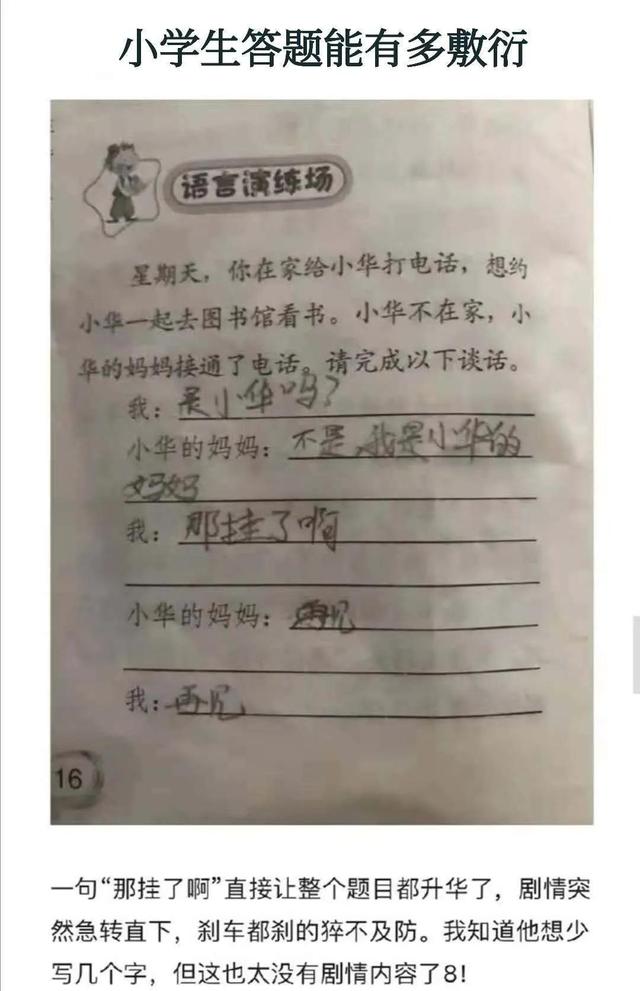 小学生答题能有多敷衍
语言演练场
星期天，你在家给小华打电话，想约
小华一起去图书馆看书。小华不在家，小
华的妈妈接通了电话。请完成以下谈话。
我：是小华吗？
小华的妈妈：不是，我是小华的
妈妈
我：那挂了啊
小华的妈妈：再见
我：再见
16
一句“那挂了啊”直接让整个题目都升华了，剧情突
然急转直下，刹车都刹的猝不及防。我知道他想少
写几个字，但这也太没有剧情内容了8！